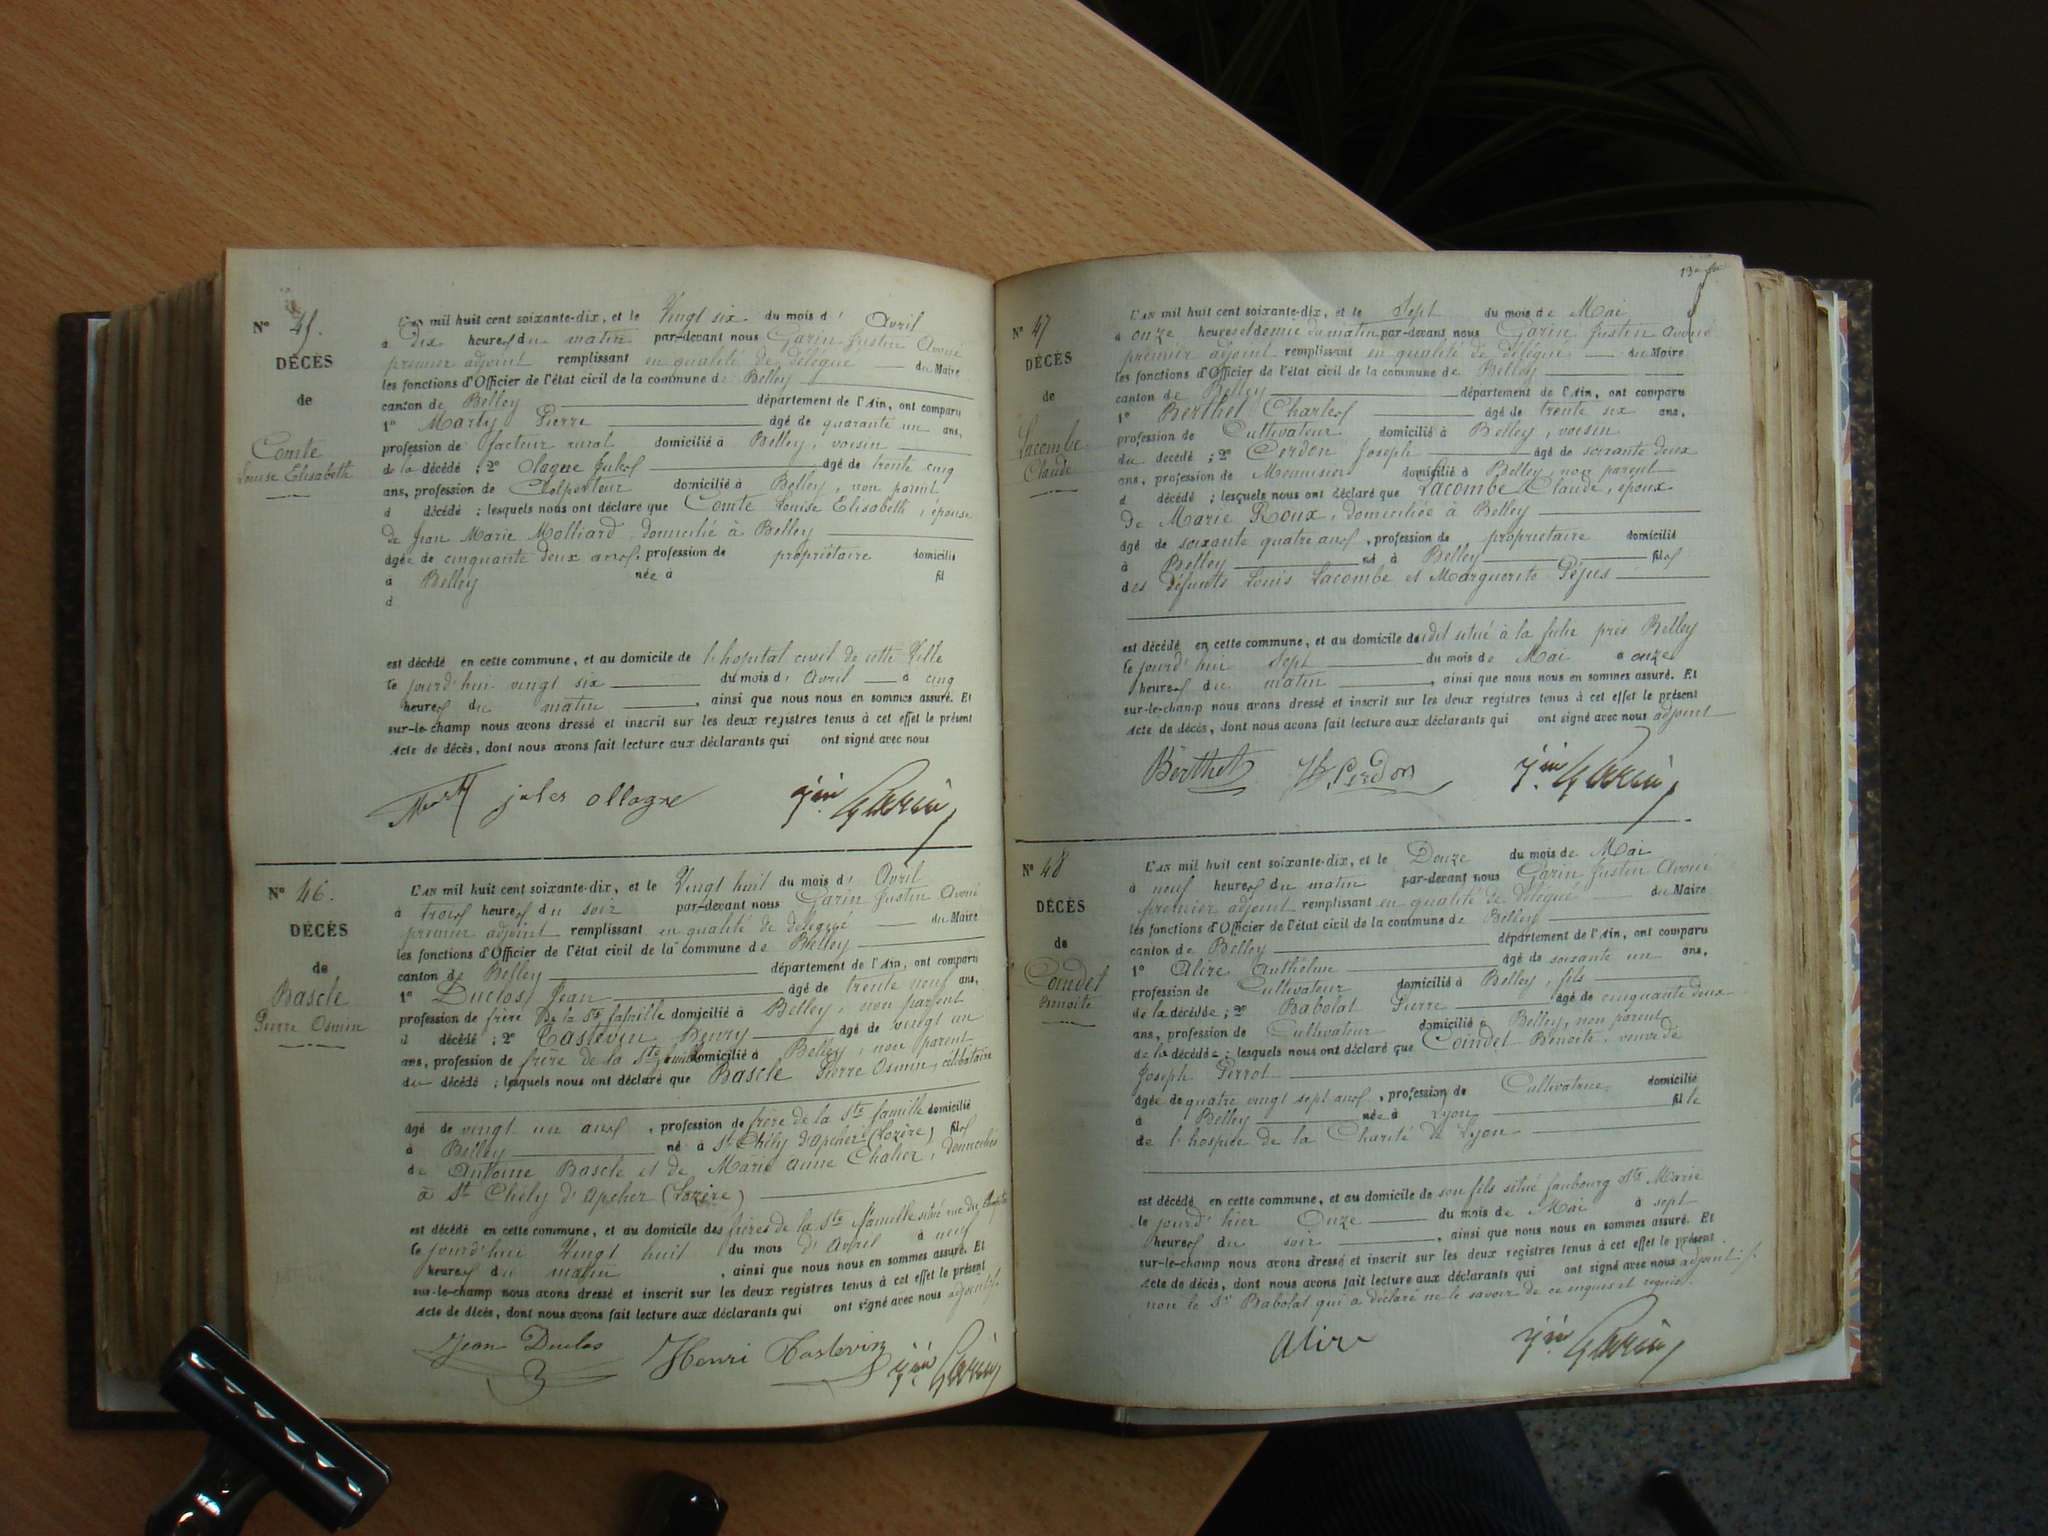 N° 45.
DÉCÈS
de
Comte
Louise Elisabeth
L'AN mil huit cent soixante-dix, et le Vingt six du mois d' Avril
à Dix heures du matin par-devant nous Garin Justin Avoué
premier adjoint remplissant en qualité de délégué du Maire
les fonctions d'Officier de l'état civil de la commune de Belley
canton de Belley département de l'Ain, ont comparu
1° Marty Pierre âgé de quarante un ans,
profession de facteur rural domicilié à Belley, voisin
de la décédé ; 2° Olagne Jules âgé de trente cinq
ans, profession de Colporteur domicilié à Belley, non parent
d décédé ; lesquels nous ont déclaré que Comte Louise Elisabeth, épouse
de Jean Marie Molliard domicilié à Belley
âgée de cinquante deux ans, profession de propriétaire domicilié
à Belley née à fil
d
est décédé en cette commune, et au domicile de l'hopital civil de cette Ville
le jourd'hui vingt six du mois d' Avril à cinq
heures du matin, ainsi que nous nous en sommes assuré. Et
sur-le-champ nous avons dressé et inscrit sur les deux registres tenus à cet effet le présent
Acte de décès, dont nous avons fait lecture aux déclarants qui ont signé avec nous
Marty jules ollagne Jin Garin
N° 46.
DÉCÈS
de
Bascle
Pierre Osmin
L'AN mil huit cent soixante-dix, et le Vingt huit du mois d' Avril
à trois heures du soir par-devant nous Garin Justin Avoué
premier adjoint remplissant en qualité de délégué du Maire
les fonctions d'Officier de l'état civil de la commune de Belley
canton de Belley département de l'Ain, ont comparu
1° Duclos Jean âgé de trente neuf ans,
profession de frère De la Ste famille domicilié à Belley, non parent
d décédé ; 2° Tastevin Henry âgé de vingt un
ans, profession de frère de la Ste famille domicilié à Belley, non parent
du décédé ; lesquels nous ont déclaré que Bascle Pierre Osmin, célibataire
âgé de vingt un ans, profession de frère de la Ste famille domicilié
à Belley né à St Chély d'Apcher (Lozère) fils
de Antoine Bascle et de Marie Anne Chalier, domiciliés
à St Chély d'Apcher (Lozère)
est décédé en cette commune, et au domicile des frères de la Ste famille situé rue du
le jourd'hui Vingt huit du mois d'Avril à neuf
heures du matin, ainsi que nous nous en sommes assuré. Et
sur-le-champ nous avons dressé et inscrit sur les deux registres tenus à cet effet le présent
Acte de décès, dont nous avons fait lecture aux déclarants qui ont signé avec nous adjoint
Jean Duclos Henri Tastevin Jin Garin
N° 47
DÉCÈS
de
Lacombe
Claude
L'AN mil huit cent soixante-dix, et le Sept du mois de Mai
à onze heures et demie du matin par-devant nous Garin Justin Avoué
premier adjoint remplissant en qualité de délégué du Maire
les fonctions d'Officier de l'état civil de la commune de Belley
canton de Belley département de l'Ain, ont comparu
1° Berthet Charles âgé de trente six ans,
profession de Cultivateur domicilié à Belley, voisin
du décédé ; 2° Cerdon Joseph âgé de soixante deux
ans, profession de Menuisier domicilié à Belley, non parent
d décédé ; lesquels nous ont déclaré que Lacombe Claude, époux
de Marie Roux, domiciliée à Belley
âgé de soixante quatre ans, profession de propriétaire domicilié
à Belley né à Belley fils
des défunts Louis Lacombe et Marguerite Péjus
est décédé en cette commune, et au domicile dudit situé à la près Belley
le jourd'hui sept du mois de Mai à onze
heures du matin, ainsi que nous nous en sommes assuré. Et
sur-le-champ nous avons dressé et inscrit sur les deux registres tenus à cet effet le présent
Acte de décès, dont nous avons fait lecture aux déclarants qui ont signé avec nous adjoint
Berthet Cerdon Jin Garin
N° 48
DÉCÈS
de
Coindet
Benoite
L'AN mil huit cent soixante-dix, et le Douze du mois de Mai
à neuf heures du matin par-devant nous Garin Justin Avoué
premier adjoint remplissant en qualité de délégué du Maire
les fonctions d'Officier de l'état civil de la commune de Belley
canton de Belley département de l'Ain, ont comparu
1° Alire Anthelme âgé de soixante un ans,
profession de Cultivateur domicilié à Belley, fils
de la décédée ; 2° Babolat Pierre âgé de cinquante deux
ans, profession de Cultivateur domicilié à Belley, non parent
de la décédée ; lesquels nous ont déclaré que Coindet Benoite, veuve de
Joseph Perrot
âgée de quatre vingt sept ans, profession de Cultivatrice domicilié
à Belley née à Lyon fille
de l'hospice de la Charité de Lyon
est décédé en cette commune, et au domicile de son fils situé faubourg Ste Marie
le jourd'hier Onze du mois de Mai à sept
heures du soir, ainsi que nous nous en sommes assuré. Et
sur-le-champ nous avons dressé et inscrit sur les deux registres tenus à cet effet le présent
Acte de décès, dont nous avons fait lecture aux déclarants qui ont signé avec nous adjoint
non le Sr Babolat qui a déclaré ne le savoir de ce enquis et requis.
Alire Jin Garin